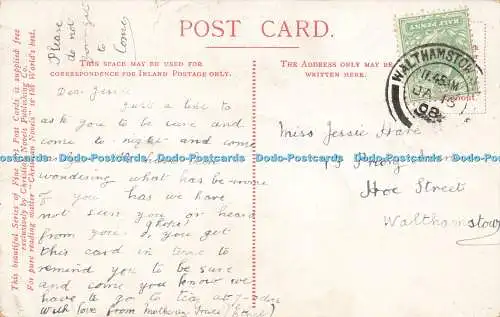 POST CARD.
THIS SPACE MAY BE USED FOR
CORRESPONDENCE FOR INLAND POSTAGE ONLY.
THE ADDRESS ONLY MAY BE
WRITTEN HERE.
This beautiful Series of Fine Art Post Cards is supplied free
exclusively by Christian Novels Publishing Co.
For pure reading matter "Christian Novels" is the World's best.
Please
do not
to
come
Dear Jessie
Just a line to
ask you to be sure and
come to night and come
Dodo-Postcards Dodo-Postcards Dodo-Postcards Dodo-Postcards Dodo-Postcards
wondering what has become
of you has we have
not seen you or heard
from you. I hope you get
this card in time to
remind you to be sure
and come you know we
have to go to tea at
With love from
HALF PENNY
WALTHAMSTOW
11.45AM
JA
08
Miss Jessie Hare
Hoe Street
Walthamstow